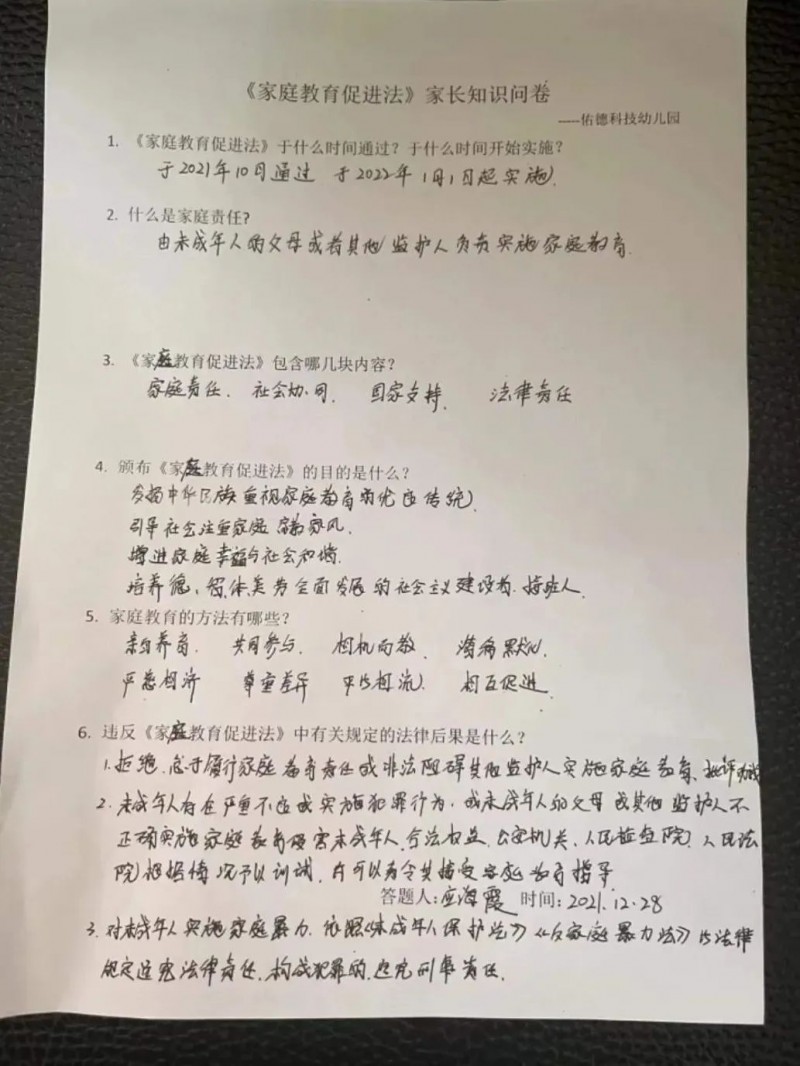 《家庭教育促进法》家长知识问卷
----佑德科技幼儿园
1. 《家庭教育促进法》于什么时间通过？于什么时间开始实施？
于2021年10月通过 于2022年1月1日起实施.
2. 什么是家庭责任?
由未成年人的父母或者其他监护人负责实施家庭教育.
3. 《家庭教育促进法》包含哪几块内容？
家庭责任. 社会协同. 国家支持. 法律责任
4. 颁布《家庭教育促进法》的目的是什么？
发扬中华民族重视家庭教育的优良传统,
引导社会注重家庭 家教家风.
增进家庭幸福与社会和谐.
培养德、智、体、美、劳全面发展的社会主义建设者.接班人.
5. 家庭教育的方法有哪些？
亲自养育. 共同参与. 相机而教. 潜移默化.
严慈相济 尊重差异 平等相流. 相互促进.
6. 违反《家庭教育促进法》中有关规定的法律后果是什么？
1.拒绝.怠于履行家庭教育责任或非法阻碍其他监护人实施家庭教育、批评
2.未成年人存在严重不良或实施犯罪行为、或未成年人的父母或其他监护人不
正确实施家庭教育侵害未成年人合法权益.公安机关、人民检查院、人民法
院根据情况予以训诫.并可以责令其接受家庭教育指导
答题人:应海霞 时间: 2021.12.28
3.对未成年人实施家庭暴力.依照《未成年人保护法》《反家庭暴力法》等法律
规定追究法律责任.构成犯罪的.追究刑事责任.